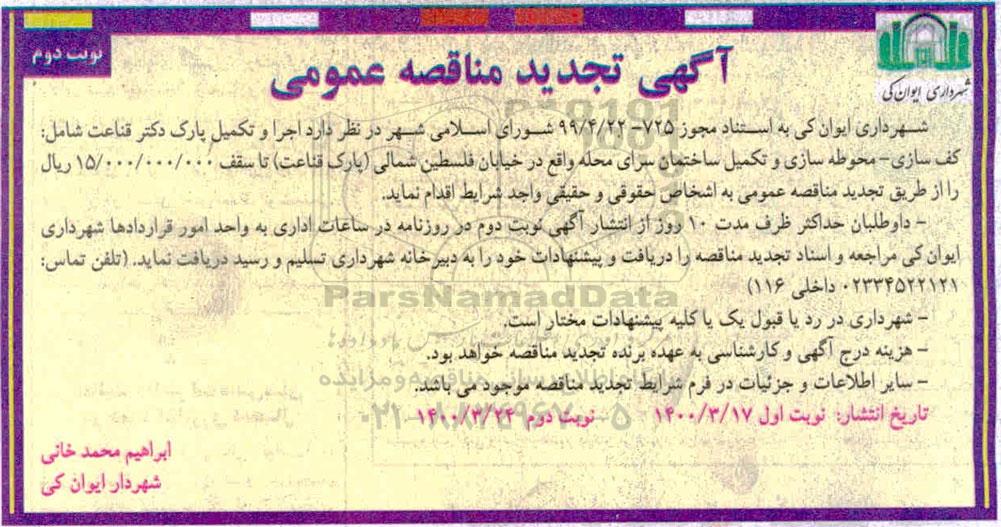 نوبت دوم
شهرداری ایوان کی
آگهی تجدید مناقصه عمومی
شهرداری ایوان کی به استناد مجوز ۷۲۵- ۹۹/۴/۲۲ شورای اسلامی شهر در نظر دارد اجرا و تکمیل پارک دکتر قناعت شامل:
کف سازی- محوطه سازی و تکمیل ساختمان سرای محله واقع در خیابان فلسطین شمالی (پارک قناعت) تا سقف ۱۵/۰۰۰/۰۰۰/۰۰۰ ریال
را از طریق تجدید مناقصه عمومی به اشخاص حقوقی و حقیقی واجد شرایط اقدام نماید.
- داوطلبان حداکثر ظرف مدت ۱۰ روز از انتشار آگهی نوبت دوم در روزنامه در ساعات اداری به واحد امور قراردادها شهرداری
ایوان کی مراجعه و اسناد تجدید مناقصه را دریافت و پیشنهادات خود را به دبیرخانه شهرداری تسلیم و رسید دریافت نماید. (تلفن تماس:
۰۲۳۳۴۵۲۲۱۲۱ داخلی ۱۱۶)
ParsNamadData
- شهرداری در رد یا قبول یک یا کلیه پیشنهادات مختار است.
- هزینه درج آگهی و کارشناسی به عهده برنده تجدید مناقصه خواهد بود.
- سایر اطلاعات و جزئیات در فرم شرایط تجدید مناقصه موجود می باشد.
تاریخ انتشار: نوبت اول ۱۴۰۰/۳/۱۷ - نوبت دوم ۱۴۰۰/۳/۲۴
ابراهیم محمد خانی
شهردار ایوان کی